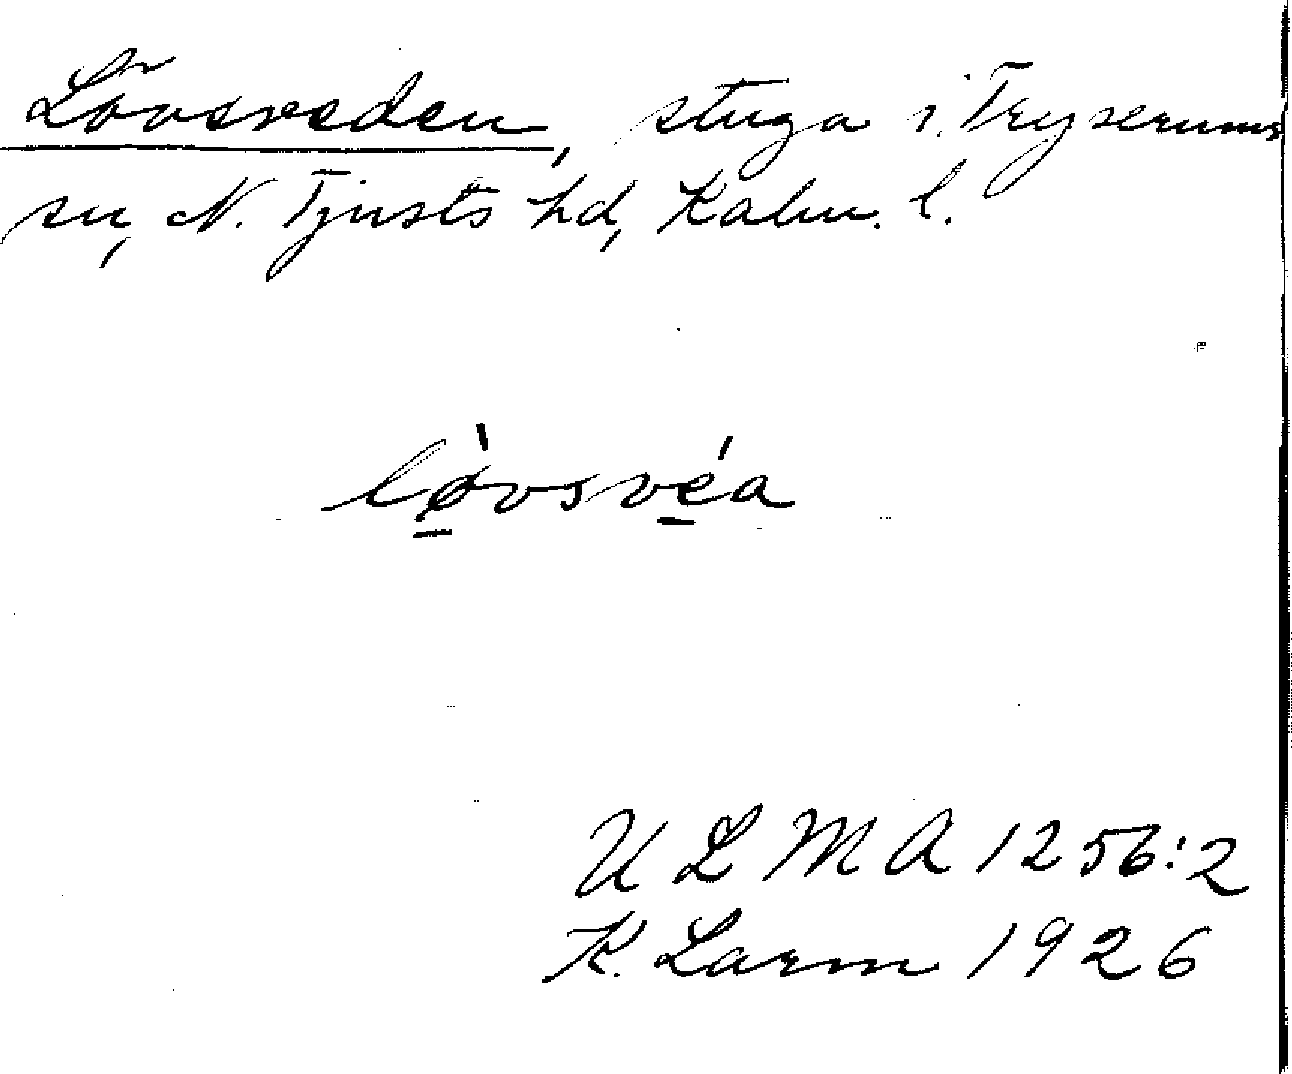 Lövsveden, stuga i Tryserums
sn, N. Tjusts hd, Kalm. l.
lø̀vsvéa
U L M A 1256:2
K. Larm 1926